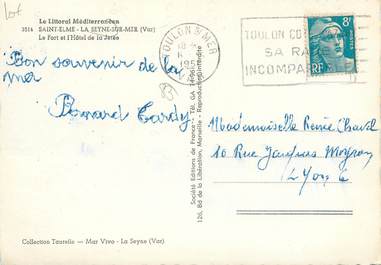 Lot
Le Littoral Méditerranéen
3516 SAINT-ELME - LA SEYNE-SUR-MER (Var)
Le Fort et l'Hôtel de la Jetée
Bon souvenir de la
mer
83
Bernard Tardy
Société Editions de France - Tél. GA.
126, Bd de la Libération, Marseille - Reproduction interdite
TOULON S MER
TOULON
SA RA
INCOMPA
8F
POSTES
RF
Mademoiselle Renée Chavel
10 Rue Jacques
Lyon 6
Collection Taurelle — Mar Vivo - La Seyne (Var)